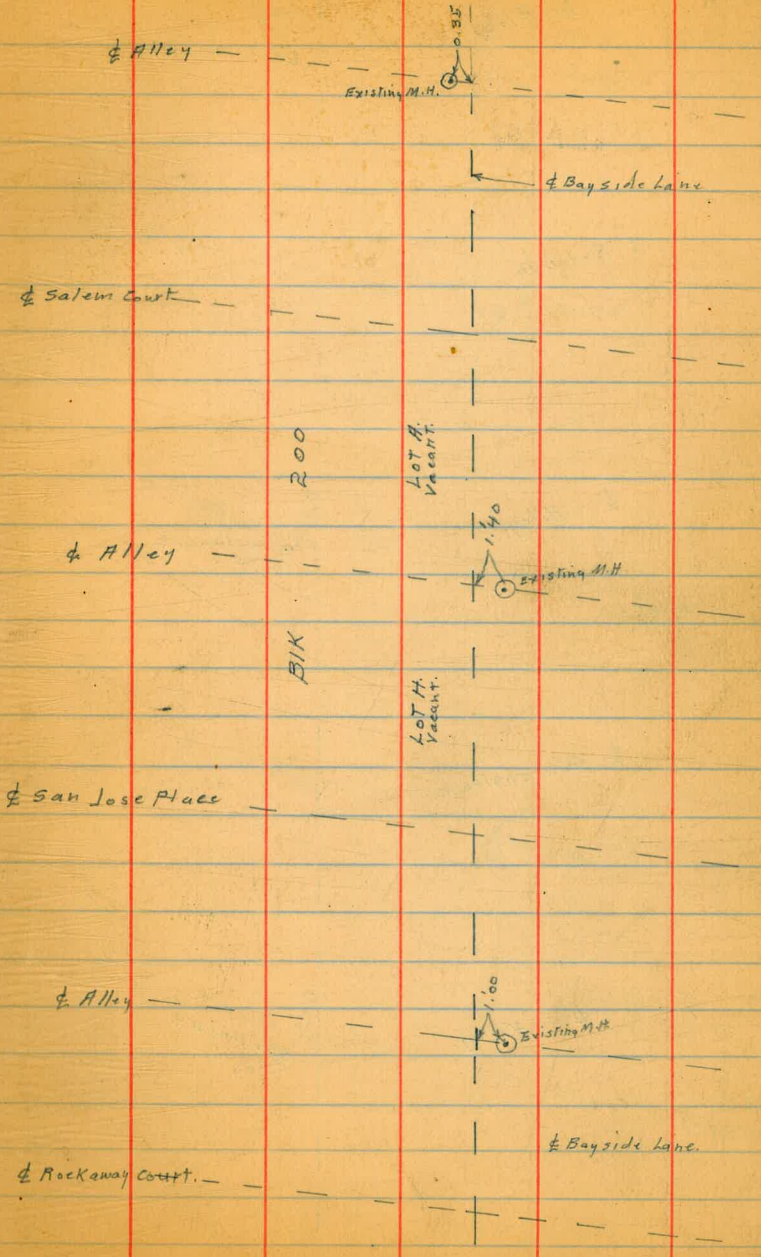 0.35
℄ Alley
Existing M.H.
℄ Bayside Lane
℄ Salem Court
200
LOT A.
Vacant.
1.'40
℄ Alley
Existing M.H
BlK
LOT H.
Vacant.
℄ San Jose Place
℄ Alley
1.'00
Existing M.H.
℄ Bayside Lane.
℄ Rockaway Court.